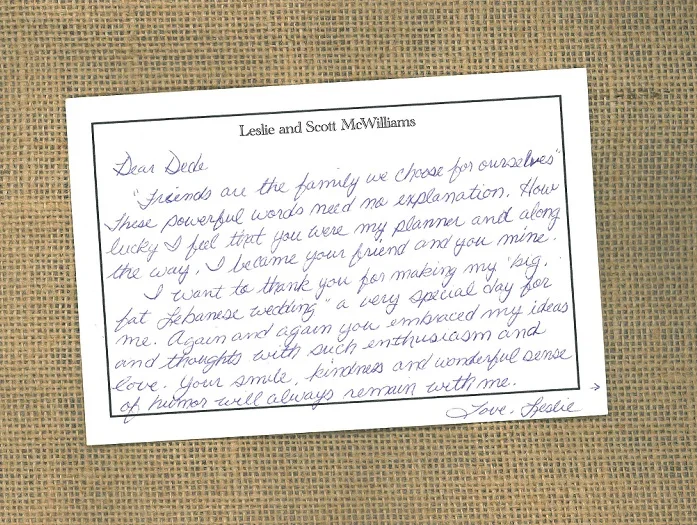 Leslie and Scott McWilliams
Dear Dede
"Friends are the family we choose for ourselves"
These powerful words need no explanation. How
lucky I feel that you were my planner and along
the way, I became your friend and you mine.
I want to thank you for making my "big,
fat Lebanese wedding" a very special day for
me. Again and again you embraced my ideas
and thoughts with such enthusiasm and
love. Your smile, kindness and wonderful sense
of humor will always remain with me.
Love, Leslie